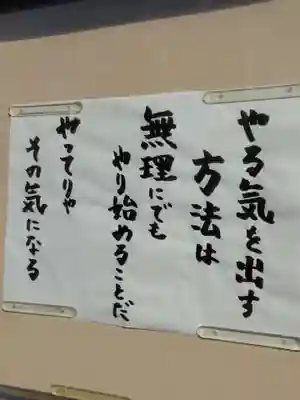 やる気を出す
方法は
無理にでも
やり始めることだ
やってりゃ
その気になる